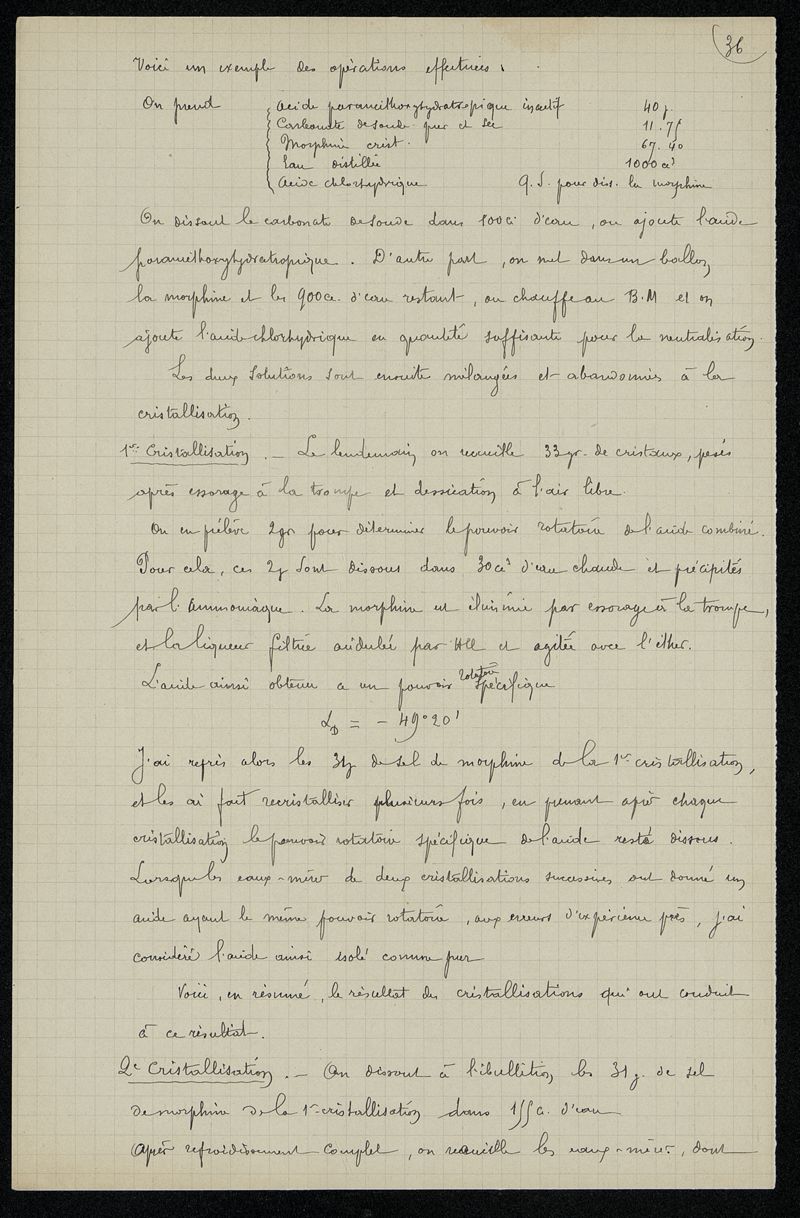 36
Voici un exemple des opérations effectuées :
On prend { Acide paraméthoxyhydratropique inactif 40 g.
Carbonate de soude pur et sec 11.75
Morphine crist. 67.40
Eau distillée 1000 cc³
Acide chlorhydrique Q.S. pour diss. la morphine
On dissout le carbonate de soude dans 100cc. d'eau, on ajoute l'acide
paraméthoxyhydratropique. D'autre part, on met dans un ballon
la morphine et les 900cc. d'eau restant, on chauffe au B.M et on
ajoute l'acide chlorhydrique en quantité suffisante pour la neutralisation.
Les deux solutions sont ensuite mélangées et abandonnées à la
cristallisation.
1re Cristallisation. – Le lendemain on recueille 33gr. de cristaux, pesés
après essorage à la trompe et dessication à l'air libre.
On en prélève 2gr pour déterminer le pouvoir rotatoire de l'acide combiné.
Pour cela, ces 2g sont dissous dans 30cc³ d'eau chaude et précipités
par l'ammoniaque. La morphine est éliminée par essorage à la trompe,
et la liqueur filtrée acidulée par HCl et agitée avec l'éther.
L'acide ainsi obtenu a un pouvoir rotatoire spécifique
αD = – 49°20'
J'ai repris alors les 31g de sel de morphine de la 1re cristallisation,
et les ai fait recristalliser plusieurs fois, en prenant après chaque
cristallisation le pouvoir rotatoire spécifique de l'acide resté dissous.
Lorsque les eaux-mères de deux cristallisations successives ont donné un
acide ayant le même pouvoir rotatoire, aux erreurs d'expérience près, j'ai
considéré l'acide ainsi isolé comme pur
Voici, en résumé, le résultat des cristallisations qui ont conduit
à ce résultat.
2e Cristallisation. – On dissout à l'ébullition les 31g. de sel
de morphine de la 1re cristallisation dans 155cc. d'eau
Après refroidissement complet, on recueille les eaux-mères, dont